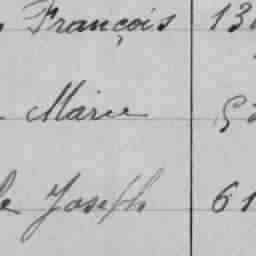 François 13
Marie 52
Joseph 61